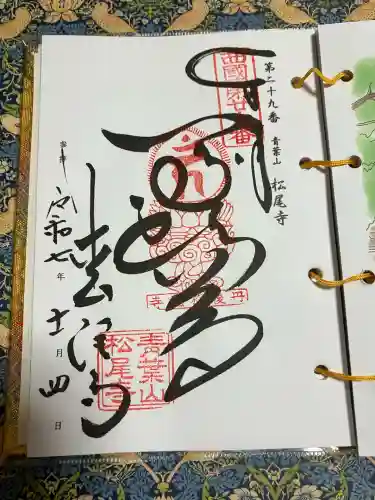 西國第廿九番
第二十九番 青葉山 松尾寺
馬頭尊
松尾寺
奉拝
令和七年十一月四日
青葉山
松尾寺